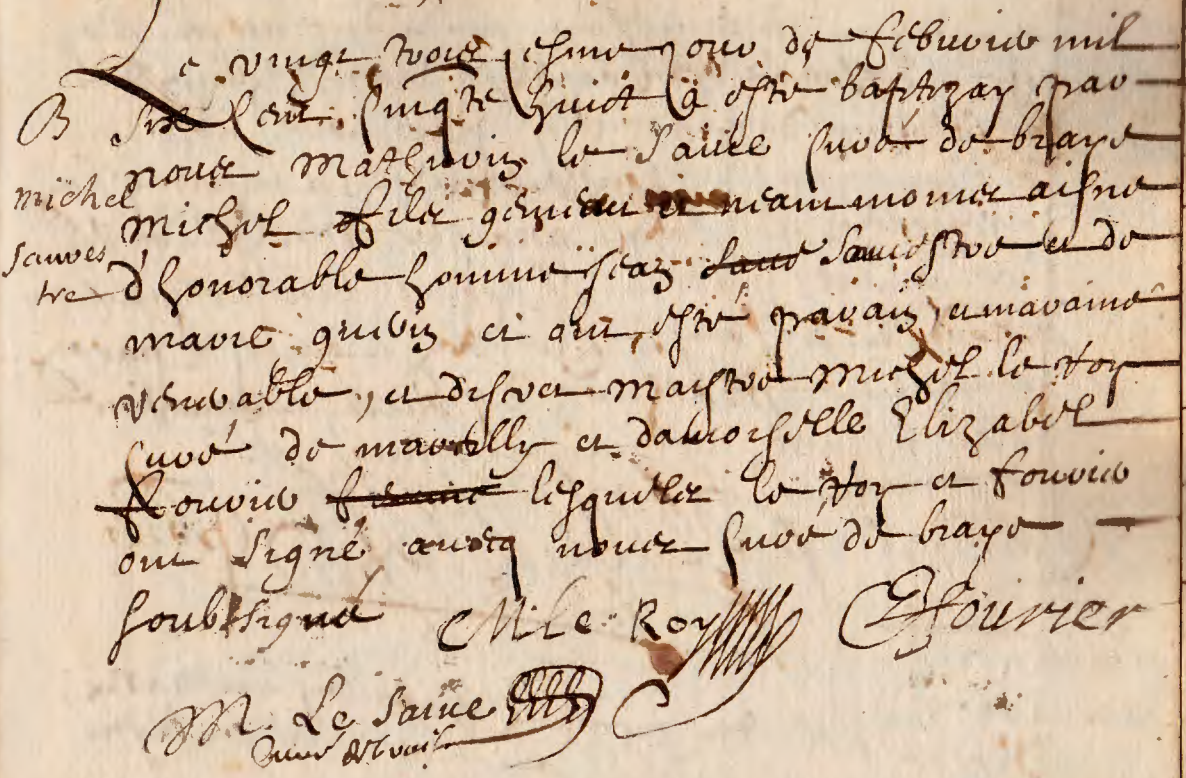 Le vingt troisiesme jour de febvrier mil
B
six cent cinqte huict a esté baptizay par
nous Mathurin le Saive curé de braye
michel
Michel fils gemeau et neammoines aisne
sauves
tre
d'honorable homme Jean Sauvestre et de
marie et ont esté parain, et maraine
venerable, et discret maistre Michel le Roy
curé de marcilly et damoiselle Elizabel
fourier femme lesquels le Roy et fourier
ont signé avecq nous curé de braye
soubsigné M le Roy E fourier
M. Le Saive
curé de braie